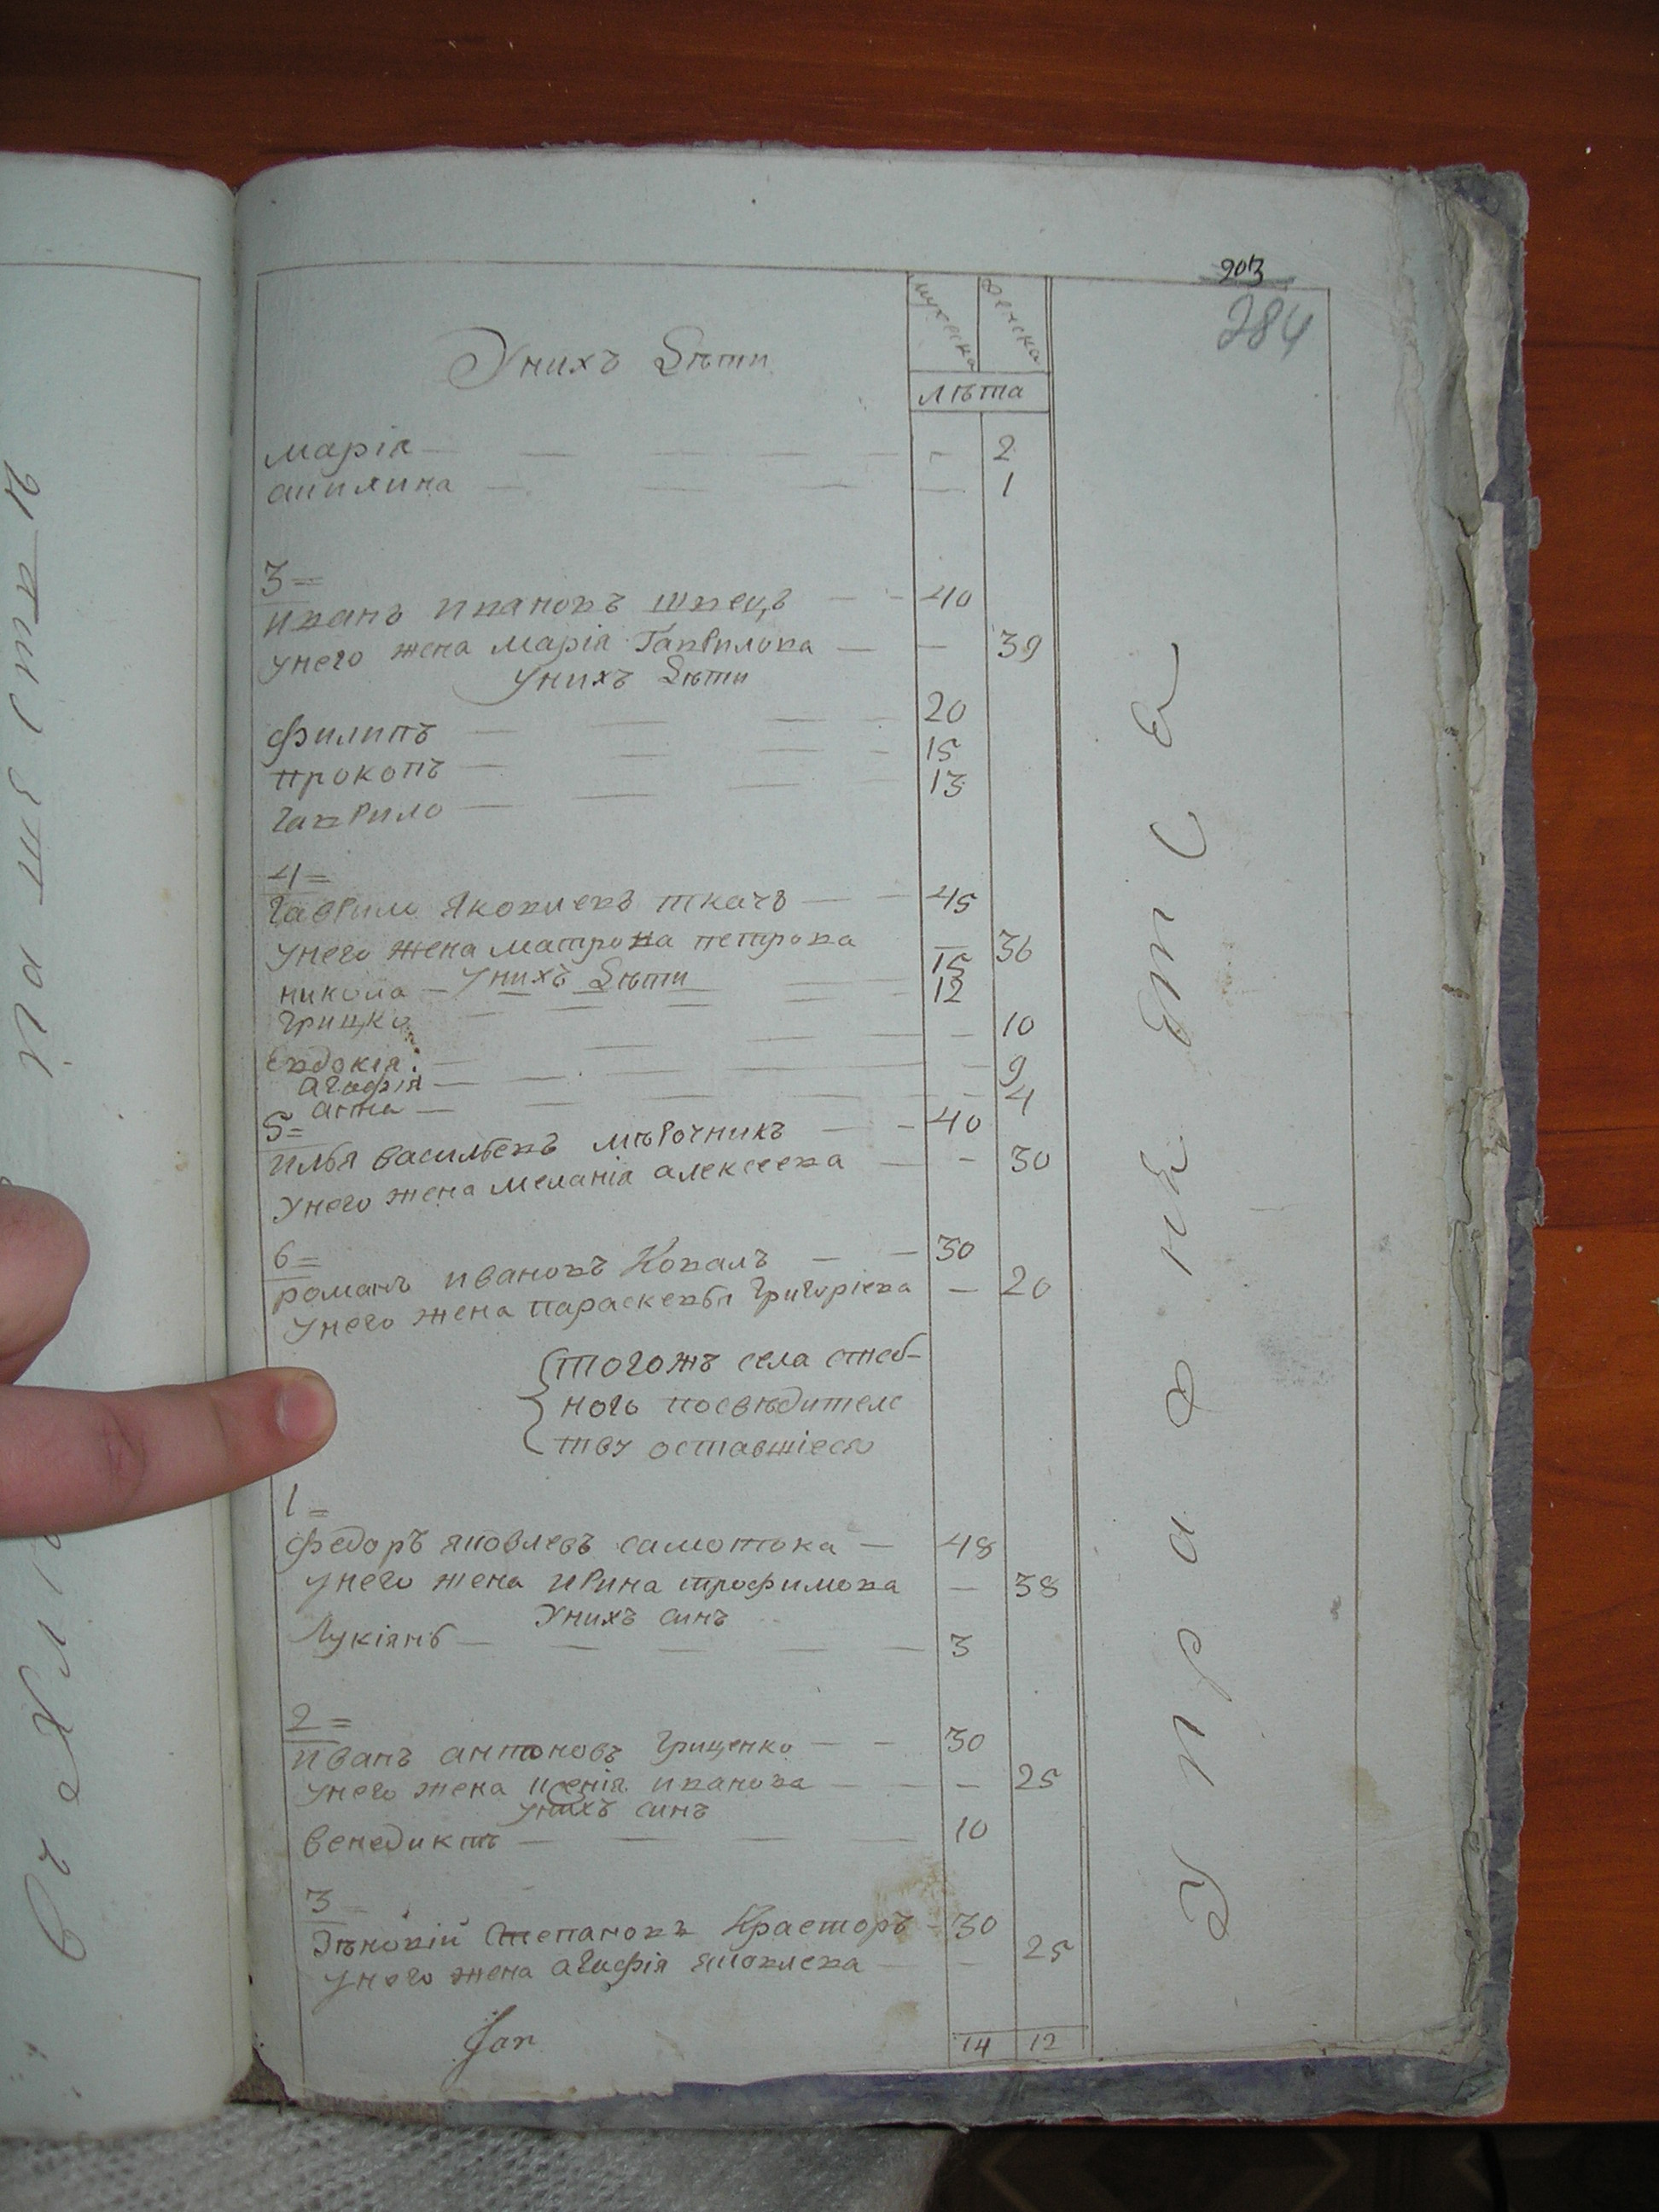 203
284
мужеска женска
Унихъ дѣти
лѣта
марія — — 2
акилина — — 1
3=
иванъ ивановъ швецъ — 40
унего жена марія Гаврилова — — 39
унихъ дѣти
филипъ — 20
прокопъ — 15
гаврило — 13
4=
гаврило яковлевъ ткачъ — 45
унего жена матрона петрова — 36
унихъ дѣти
никола — 15
грицко — 12
Евдокія — — 10
агафія — — 9
анна — — 4
5=
илья васильевъ мѣрочникъ — 40
Унего жена меланія алексеева — — 30
6=
романъ ивановъ Коваль — 30
унего жена параскевья григоріева — 20
тогожъ села
ного посвѣдителс
тву оставшіеся
1=
федоръ яковлевъ самотока — 48
унего жена ирина трофимова — 38
Унихъ синъ
Лукіянъ — 3
2=
иванъ антоновъ гриценко — 30
унего жена ксенія иванова — — 25
унихъ синъ
венедиктъ — 10
3=
Зѣновій степановъ — 30
унего жена агафія яковлева — — 25
14 12